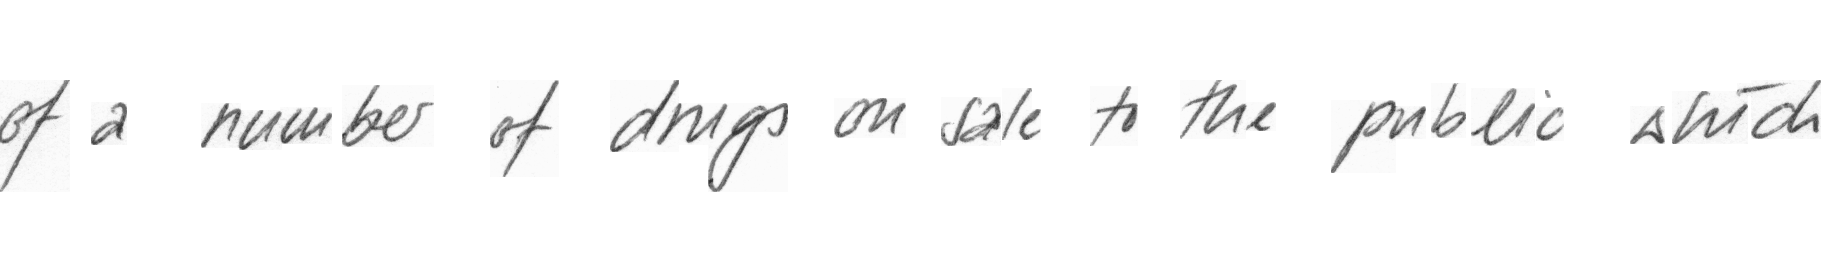 of a number of drugs on sale to the public which